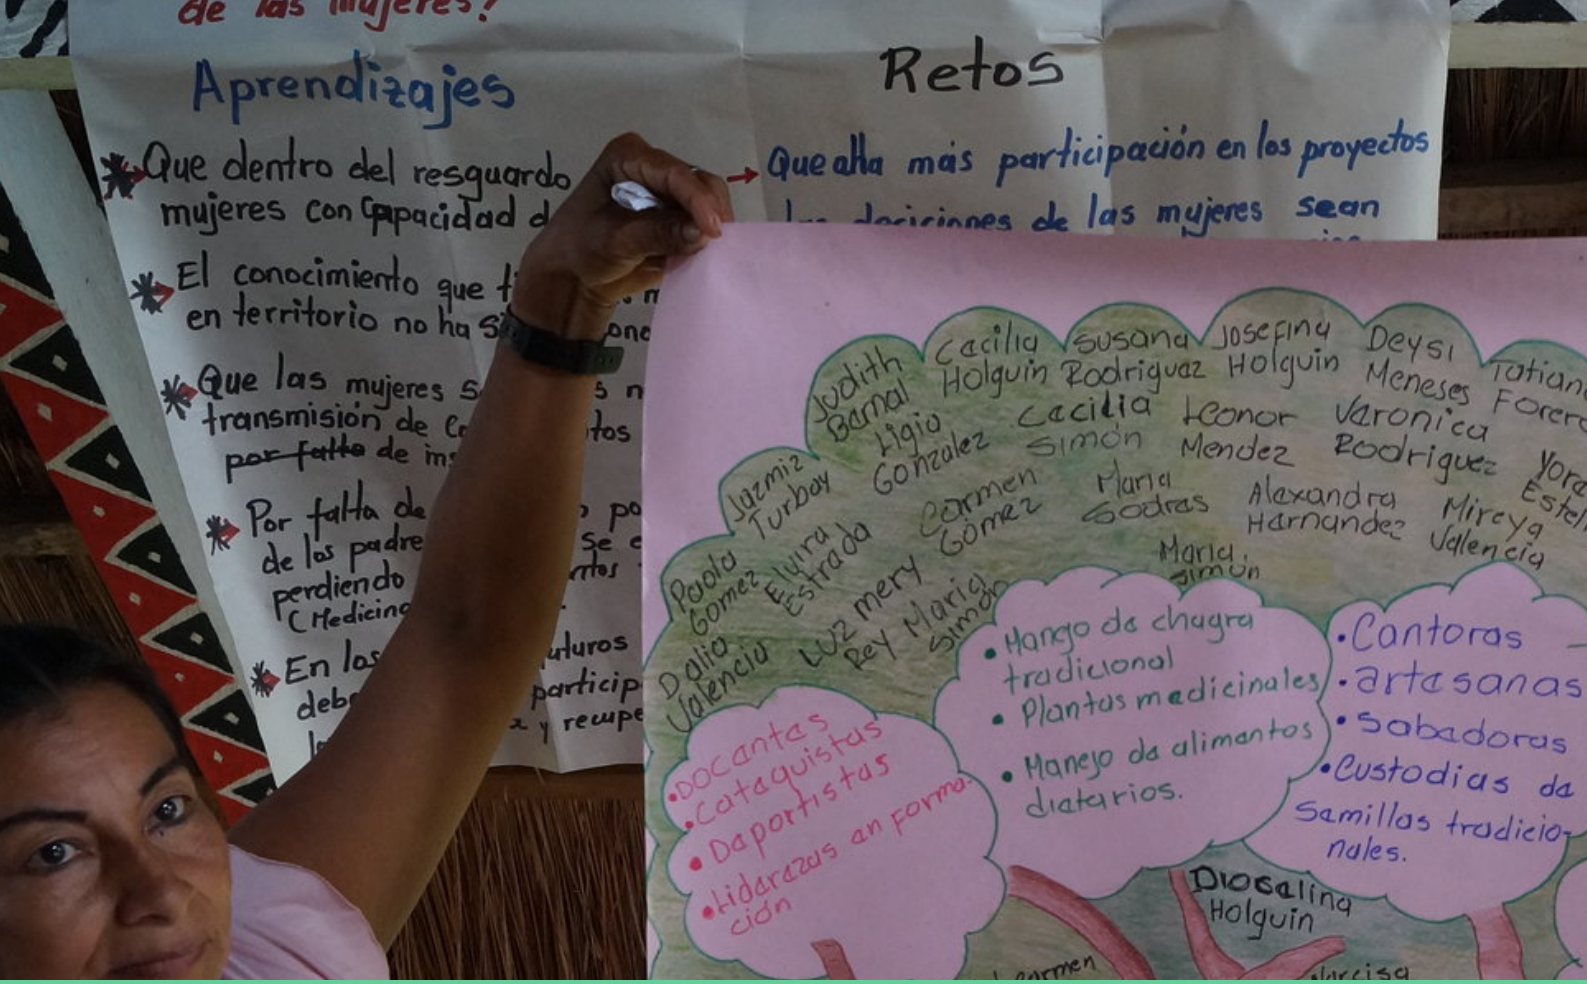 de las mujeres?
Aprendizajes
Que dentro del resguardo
mujeres con Capacidad
El conocimiento que
en territorio no ha
Que las mujeres
transmisión de
por falta de
Por falta de
de los padre
perdiendo
(Medicina
En los
futuros
particip
y recupe
Retos
Que alla más participación en los proyectos
las deciciones de las mujeres sean
Judith
Barnal
Cacilia
Holguin
Susana
Rodriguaz
Josefina
Holguin
Deysi
Meneses
Tatian
Forero
Ligia
Gonzalez
Cacilia
Simón
Leonor
Mendez
Varonica
Rodriguez
Jazmiz
Turbay
Carmen
Gómez
Maria
Alexandra
Harnandez
Mireya
Valencia
Estel
Paola
Gomez
Elvira
Estrada
Luz mery
Rey
Maria
Simón
Maria
Simón
Dalia
Valencia
•Docantas
•Cataquistas
•Daportistas
•Lidarazas an forma-
ción
•Mango da chagra
tradicional
•Plantas madicinales
•Manejo da alimantos
diatarios.
•Cantoras
•artasanas
•Sabadoras
•Custodias da
Samillas tradicio-
nales.
Diosalina
Holguin
carmen
Narcisa